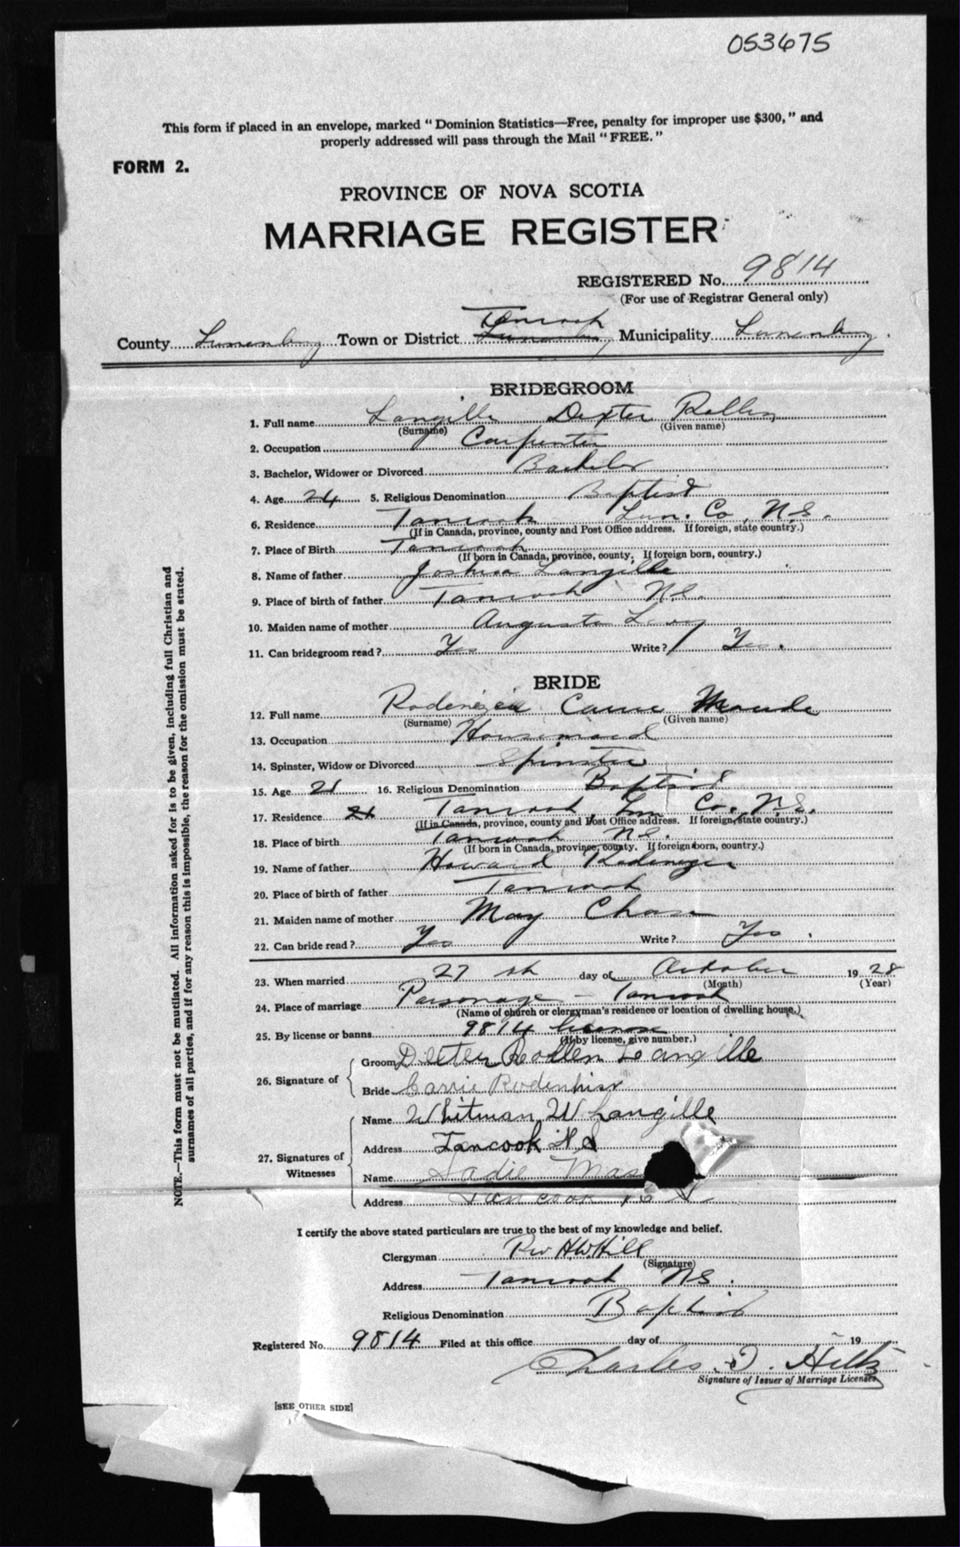 053675
This form if placed in an envelope, marked "Dominion Statistics—Free, penalty for improper use $300," and
properly addressed will pass through the Mail "FREE."
FORM 2.
PROVINCE OF NOVA SCOTIA
MARRIAGE REGISTER
REGISTERED No. 9814
(For use of Registrar General only)
Tancook
County Lunenburg Town or District Lunenburg Municipality Lunenburg
BRIDEGROOM
1. Full name Langille Dexter
(Surname) (Given name)
2. Occupation Carpenter
3. Bachelor, Widower or Divorced Bachelor
4. Age 24 5. Religious Denomination Baptist
6. Residence Tancook Lun. Co, N.S.
(If in Canada, province, county and Post Office address. If foreign, state country.)
7. Place of Birth Tancook
(If born in Canada, province, county. If foreign born, country.)
8. Name of father Joshua Langille
9. Place of birth of father Tancook N.S.
10. Maiden name of mother Augusta Levy
11. Can bridegroom read? Yes Write? Yes.
BRIDE
12. Full name Maude
(Surname) (Given name)
13. Occupation Housemaid
14. Spinster, Widow or Divorced Spinster
15. Age 21 16. Religious Denomination Baptist
17. Residence 21 Tancook Lun Co. N.S.
(If in Canada, province, county and Post Office address. If foreign, state country.)
18. Place of birth Tancook N.S.
(If born in Canada, province, county. If foreign born, country.)
19. Name of father Howard
20. Place of birth of father Tancook
21. Maiden name of mother May
22. Can bride read? Yes Write? Yes.
23. When married 27 th day of October 1928
(Month) (Year)
24. Place of marriage Parsonage - Tancook
(Name of church or clergyman's residence or location of dwelling house.)
25. By license or banns 9814 license
(If by license, give number.)
26. Signature of
Groom Dexter Rollen Langille
Bride Carrie Rodenhiser
27. Signatures of Witnesses
Name Whitman W Langille
Address Tancook N.S
Name Sadie Mas
Address Tancook N S
I certify the above stated particulars are true to the best of my knowledge and belief.
Clergyman Rev H.W. Hill
(Signature)
Address Tancook N.S.
Religious Denomination Baptist
Registered No. 9814 Filed at this office day of 19
Charles Hiltz
Signature of Issuer of Marriage Licenses
[SEE OTHER SIDE]
NOTE.—This form must not be mutilated. All information asked for is to be given, including full Christian and
surnames of all parties, and if for any reason this is impossible, the reason for the omission must be stated.